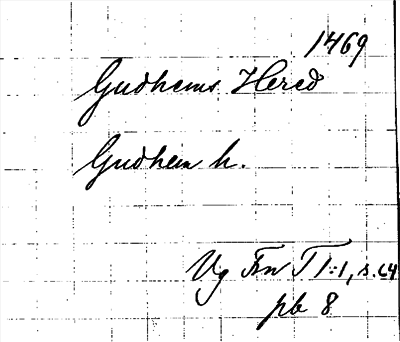 1469
Gudhems Hered
Gudhem h.
Vg Fnn T 1:1, s. 64
pb 8